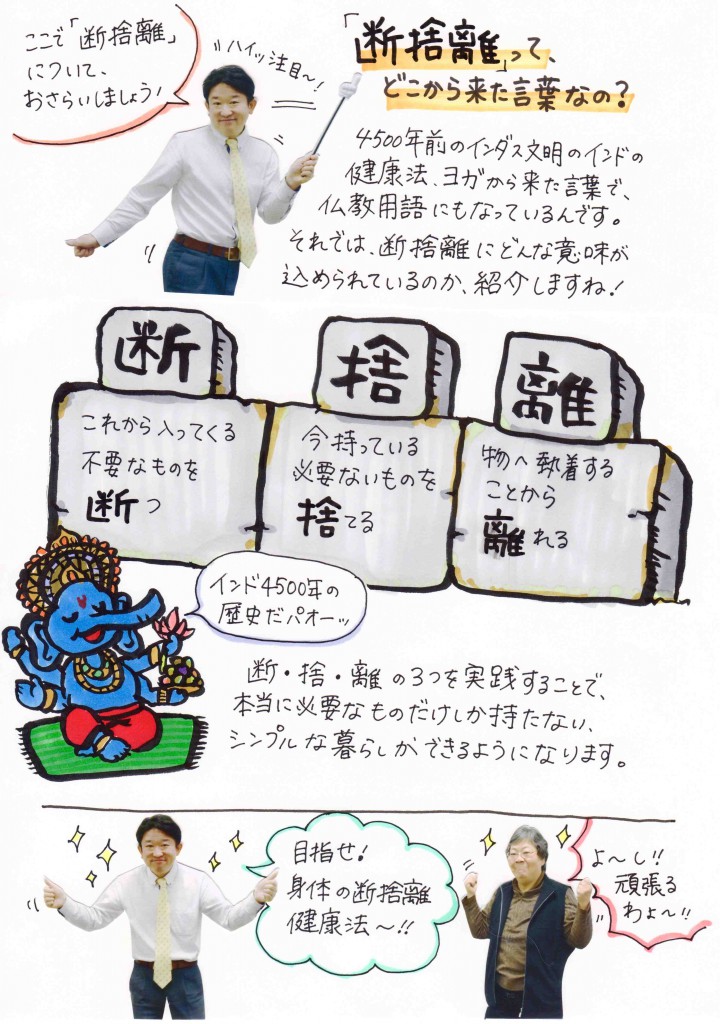 ここで「断捨離」
について、
おさらいしましょう！
ハイッ注目～！
「断捨離」って、
どこから来た言葉なの？
4500年前のインダス文明のインドの
健康法、ヨガから来た言葉で、
仏教用語にもなっているんです。
それでは、断捨離にどんな意味が
込められているのか、紹介しますね！
断
これから入ってくる
不要なものを
断つ
捨
今持っている
必要ないものを
捨てる
離
物へ執着する
ことから
離れる
インド4500年の
歴史だパオーッ
断・捨・離の3つを実践することで、
本当に必要なものだけしか持たない、
シンプルな暮らしができるようになります。
目指せ！
身体の断捨離
健康法～!!
よ～し!!
頑張る
わよ～!!